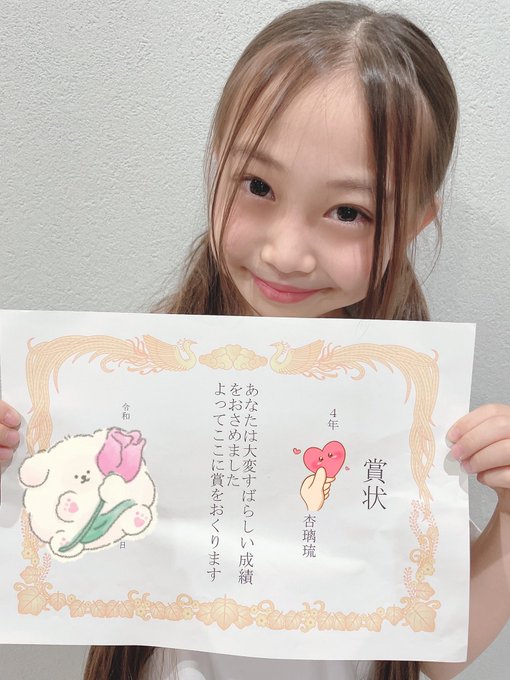 賞状
4年
杏璃琉
あなたは大変すばらしい成績
をおさめました
よってここに賞をおくります
令和
日